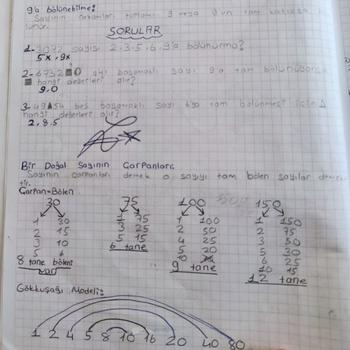 9'a bölünebilme:
Sayının rakamları toplamı 9 veya 9'un tam katıysa
SORULAR
sayısı 2,3,5,6,9'a bölünürmü?
5x, 9x
2-6732 altı basamaklı sayı 9'a tam bölünüyorsa
hangi değerleri alır?
9,0
3- 49▲54 beş basamaklı sayı tam
hangi değerleri alır?
2,8,5
Bir Doğal Sayının Çarpanları:
Sayının çarpanları demek o sayıyı tam bölen sayılar
tir.
Çarpan=Bölen
30 75 100 150
1 30 1 75 1 100 1 150
2 15 3 25 2 50 2 75
3 10 5 15 4 25 3 50
5 6 6 tane 5 20 5 30
8 tane bölen 10 6 25
var 9 tane 10 15
12 tane
Gökkuşağı Modeli:
1 2 4 5 8 10 16 20 40 80